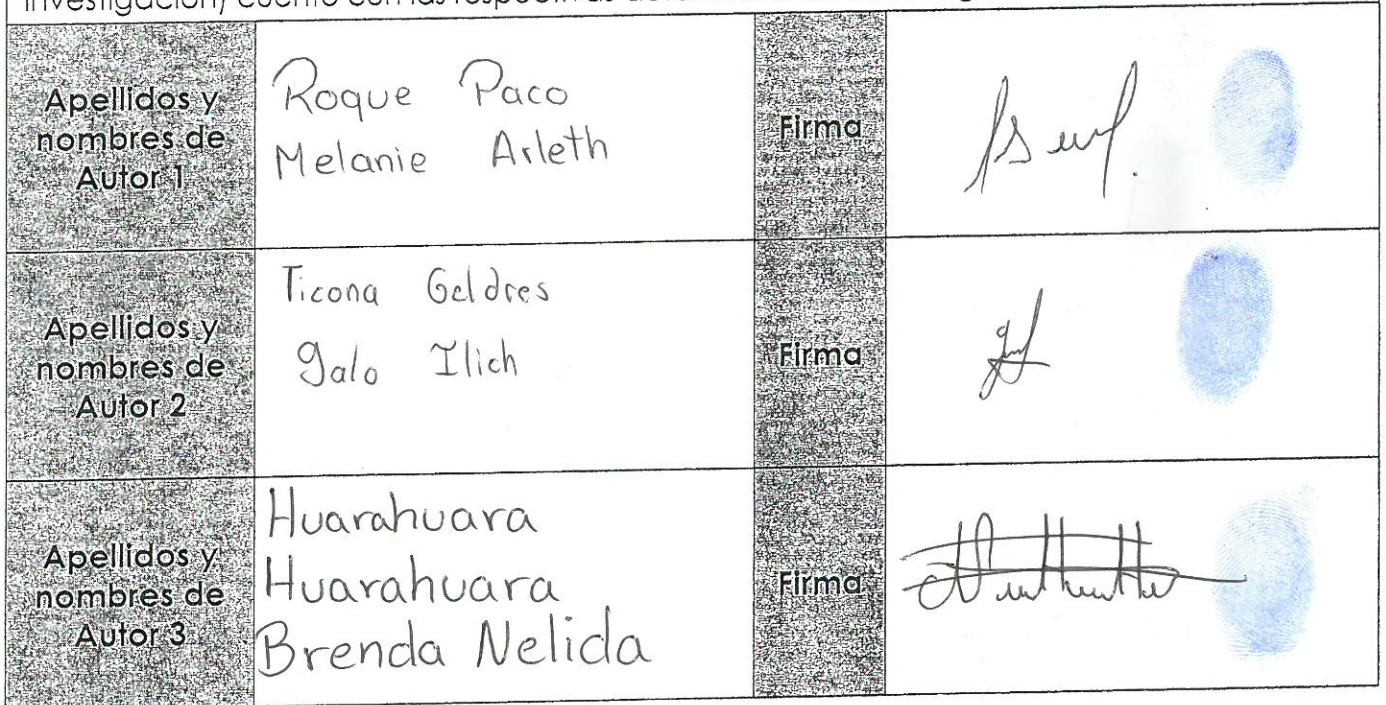 Apellidos y
nombres de
Autor 1
Roque Paco
Melanie Arleth
Firma
Apellidos y
nombres de
Autor 2
Ticona Geldres
Galo Ilich
Firma
Apellidos y
nombres de
Autor 3
Huarahuara
Huarahuara
Brenda Nelida
Firma